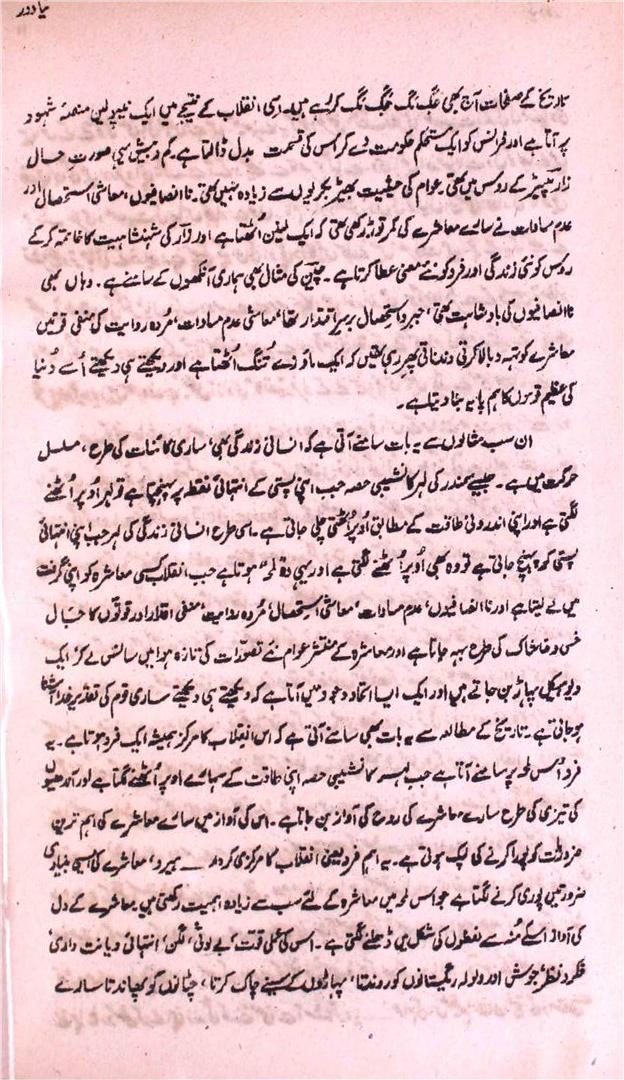 نیا دور
تاریخ کے صفحات آج بھی جگ مگ جگ مگ کر رہے ہیں۔ اسی انقلاب کے نتیجے میں ایک نیپولین منصۂ شہود
پر آتا ہے اور فرانس کو ایک مستحکم حکومت دے کر اس کی قسمت بدل ڈالتا ہے۔ کم و بیش یہی صورتِ حال
زار کے روس میں تھی۔ عوام کی حیثیت بھیڑ بکریوں سے زیادہ نہیں تھی۔ ناانصافیوں، معاشی استحصال اور
عدم مساوات نے سارے معاشرے کی کمر توڑ رکھی تھی کہ ایک لینن اُٹھتا ہے اور زار کی شہنشاہیت کا خاتمہ کر کے
روس کو نئی زندگی اور فرد کو نئے معنی عطا کرتا ہے۔ چین کی مثال بھی ہماری آنکھوں کے سامنے ہے۔ وہاں بھی
ناانصافیوں کی بادشاہت تھی، جبر و استحصال برسرِ اقتدار تھا، معاشی عدم مساوات، مُردہ روایت کی منفی قوتیں
معاشرے کو تہہ و بالا کرتی دندناتی پھر رہی تھیں کہ ایک ماؤزے تُنگ اُٹھتا ہے اور دیکھتے ہی دیکھتے اُسے دُنیا
کی عظیم قوموں کا ہم پایہ بنا دیتا ہے۔
ان سب مثالوں سے یہ بات سامنے آتی ہے کہ انسانی زندگی بھی، ساری کائنات کی طرح، مسلسل
حرکت میں ہے۔ جیسے سمندر کی لہر کا نشیبی حصہ جب اپنی پستی کے انتہائی نقطہ پر پہنچتا ہے تو لہر اُوپر اُٹھنے
لگتی ہے اور اپنی اندرونی طاقت کے مطابق اُوپر اُٹھتی چلی جاتی ہے۔ اسی طرح انسانی زندگی کی لہر جب اپنی انتہائی
پستی کو پہنچ جاتی ہے تو وہ بھی اُوپر اُٹھنے لگتی ہے اور یہی وہ لمحہ ہوتا ہے جب انقلاب کسی معاشرہ کو اپنی گرفت
میں لے لیتا ہے اور ناانصافیوں، عدم مساوات، معاشی استحصال، مُردہ روایت، منفی اقدار اور قوتوں کا جال
خس و خاشاک کی طرح بہہ جاتا ہے اور معاشرہ کے منتشر عوام نئے تصورات کی تازہ ہوا میں سانس لے کر ایک
دیو ہیکل پہاڑ بن جاتے ہیں اور ایک ایسا اتحاد وجود میں آتا ہے کہ دیکھتے ہی دیکھتے ساری قوم کی تقدیر خدا آشنا
ہو جاتی ہے۔ تاریخ کے مطالعہ سے یہ بات بھی سامنے آتی ہے کہ اس انقلاب کا مرکز ہمیشہ ایک فرد ہوتا ہے۔ یہ
فرد اُس لمحہ پر سامنے آتا ہے جب لہر کا نشیبی حصہ اپنی طاقت کے سہارے اوپر اُٹھنے لگتا ہے اور آندھیوں
کی تیزی کی طرح سارے معاشرے کی روح کی آواز بن جاتا ہے۔ اس کی آواز میں سارے معاشرے کی اہم ترین
ضرورت کو پورا کرنے کی لپک ہوتی ہے۔ یہ اہم فرد یعنی انقلاب کا مرکزی کردار — ہیرو، معاشرے کی ایسی بنیادی
ضرورتیں پوری کرنے لگتا ہے جو اس لمحہ میں معاشرہ کے لئے سب سے زیادہ اہمیت رکھتی ہیں۔ معاشرے کے دل
کی آواز اسکے مُنہ سے لفظوں کی شکل میں ڈھلنے لگتی ہے۔ اس کی عملی قوت، بے لوثی، لگن، انتہائی دیانت داری،
فکر و نظر، جوش اور ولولہ ریگستانوں کو روندتا، پہاڑوں کے سینے چاک کرتا، چٹانوں کو پھاندتا سارے